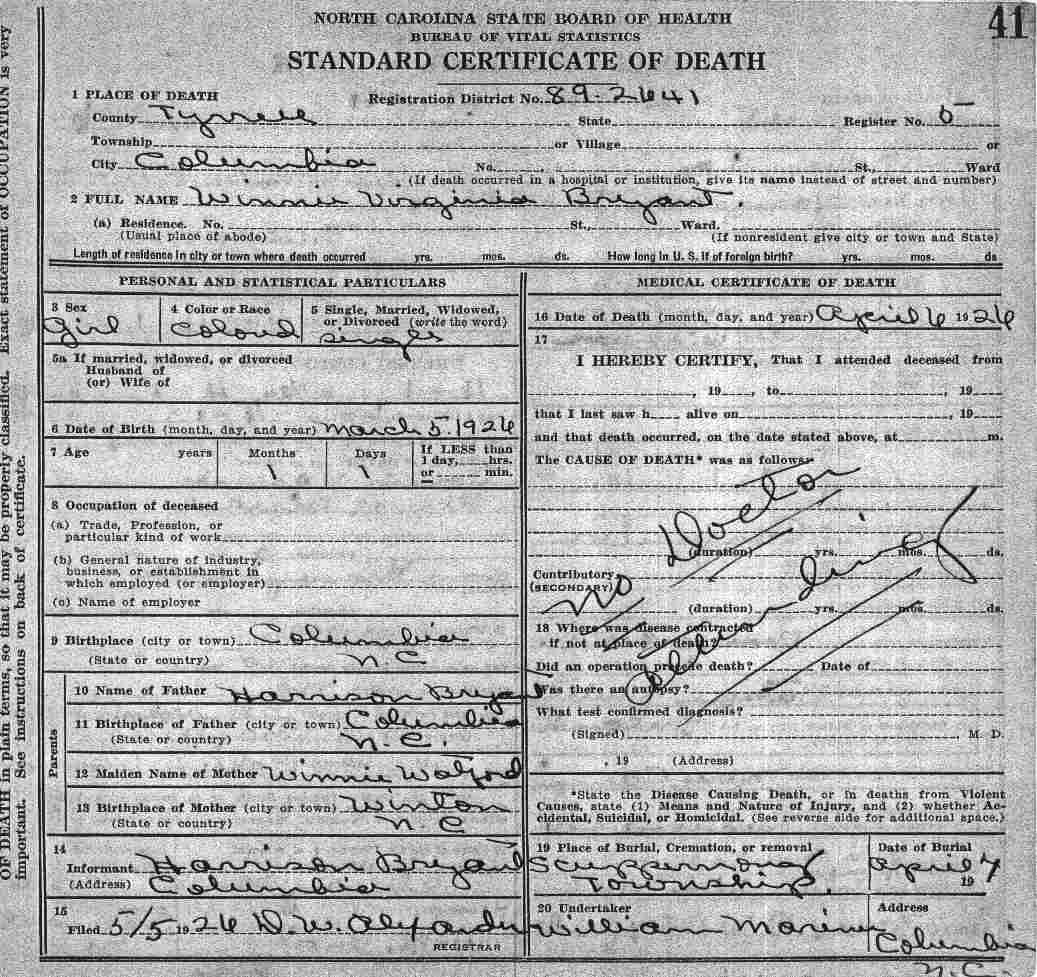 NORTH CAROLINA STATE BOARD OF HEALTH
BUREAU OF VITAL STATISTICS
STANDARD CERTIFICATE OF DEATH
41
1 PLACE OF DEATH Registration District No. 89-2641
County Tyrrell State Register No. 5
Township or Village or
City Columbia No. St., Ward
(If death occurred in a hospital or institution, give its name instead of street and number)
2 FULL NAME Winnie Virginia Bryant.
(a) Residence. No. St., Ward.
(Usual place of abode) (If nonresident give city or town and State)
Length of residence in city or town where death occurred yrs. mos. ds. How long in U. S. if of foreign birth? yrs. mos. ds
PERSONAL AND STATISTICAL PARTICULARS
3 Sex 4 Color or Race 5 Single, Married, Widowed,
or Divorced (write the word)
Girl Colord single
5a If married, widowed, or divorced
Husband of
(or) Wife of
6 Date of Birth (month, day, and year) March 5. 1926
7 Age years Months Days If LESS than
1 day, hrs.
1 1 or min.
8 Occupation of deceased
(a) Trade, Profession, or
particular kind of work
(b) General nature of industry,
business, or establishment in
which employed (or employer)
(c) Name of employer
9 Birthplace (city or town) Columbia
(State or country) N.C
Parents
10 Name of Father Harrison Bryant
11 Birthplace of Father (city or town) Columbia
(State or country) N.C.
12 Maiden Name of Mother Winnie
13 Birthplace of Mother (city or town) Winton
(State or country) N.C
14
Informant Harrison Bryant
(Address) Columbia
15
Filed 5/5 1926 D.W. Alexander
REGISTRAR
MEDICAL CERTIFICATE OF DEATH
16 Date of Death (month, day, and year) April 6 1926
17
I HEREBY CERTIFY, That I attended deceased from
, 19 , to , 19
that I last saw h alive on , 19
and that death occurred, on the date stated above, at m.
The CAUSE OF DEATH* was as follows:
No Doctor
(duration) yrs. mos. ds.
Contributory
(SECONDARY)
(duration) yrs. mos. ds.
18 Where was disease contracted
if not at place of death?
Did an operation precede death? Date of
Was there an autopsy?
What test confirmed diagnosis?
(Signed) M. D.
, 19 (Address)
*State the Disease Causing Death, or in deaths from Violent
Causes, state (1) Means and Nature of Injury, and (2) whether Ac-
cidental, Suicidal, or Homicidal. (See reverse side for additional space.)
19 Place of Burial, Cremation, or removal Date of Burial
Scuppernong April 7
Township. 19
20 Undertaker Address
William Mariner Columbia
N.C
OF DEATH in plain terms, so that it may be properly classified. Exact statement of OCCUPATION is very
important. See instructions on back of certificate.